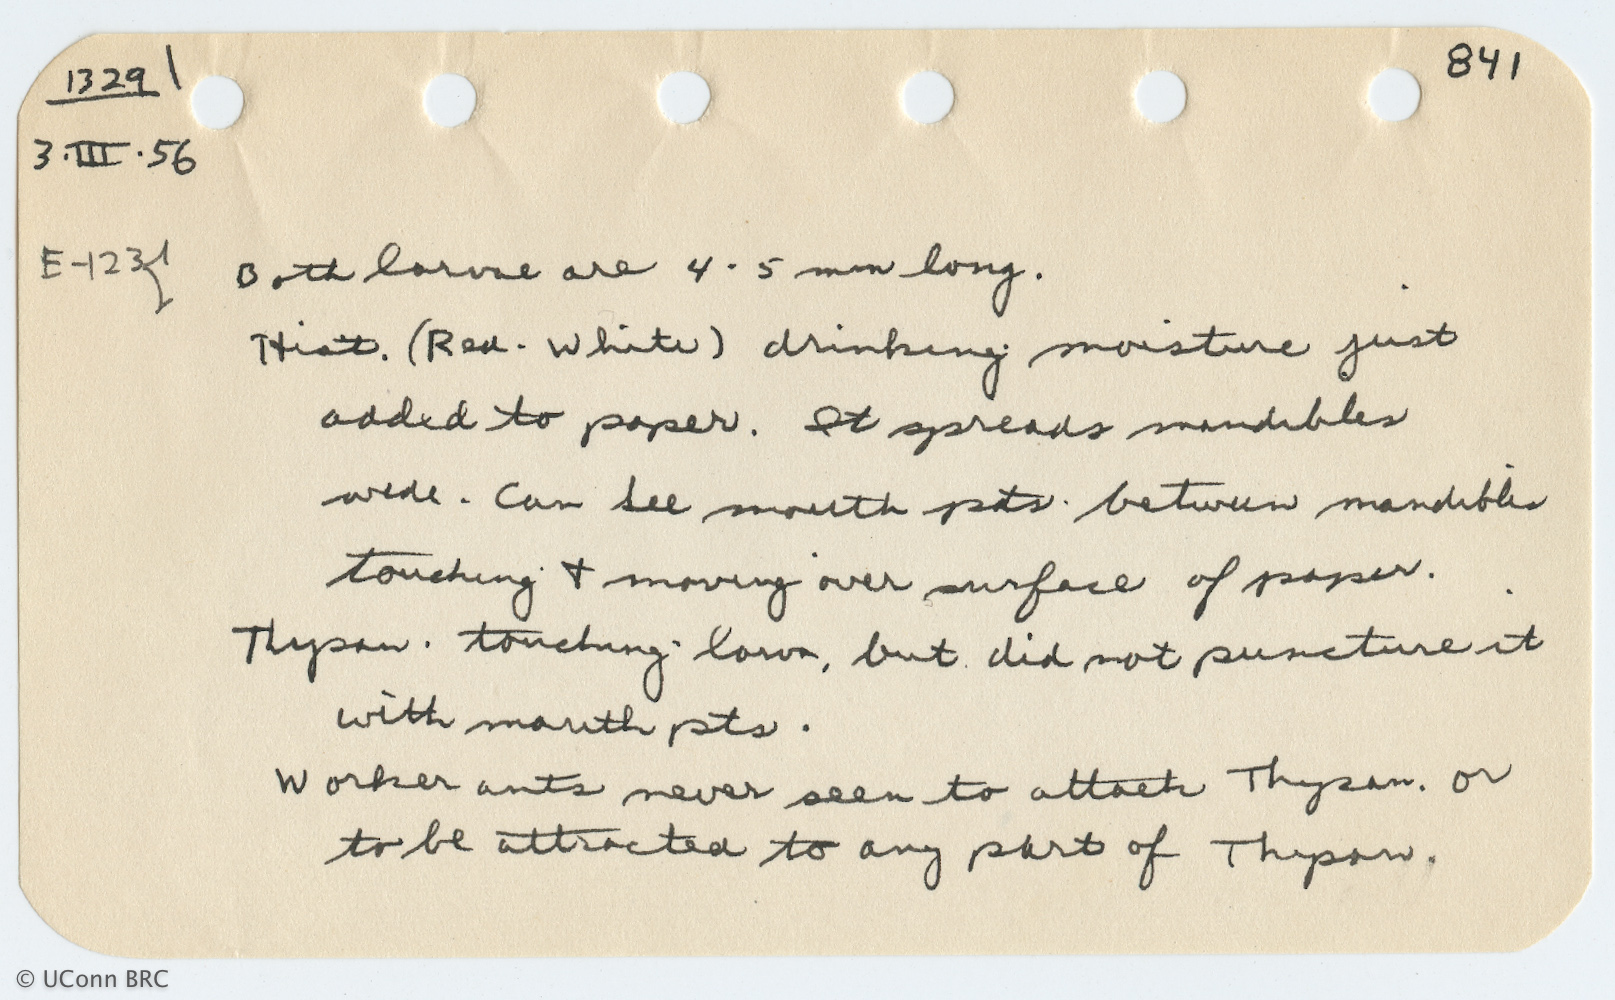 1329 841
3·III·56
E-123 Both larvae are 4-5 mm long.
Hist. (Red-White) drinking moisture just
added to paper. It spreads mandibles
wide. Can see mouth pts. between mandibles
touching & moving over surface of paper.
Thysan. touching larva, but did not puncture it
with mouth pts.
Worker ants never seen to attack Thysan. or
to be attracted to any part of Thysan.
© UConn BRC